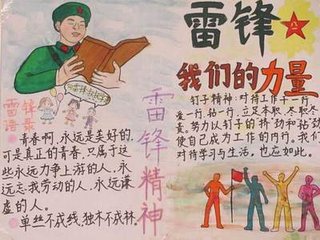 雷锋
我们的力量
雷锋
语录
青春啊,永远是美好的,
可是真正的青春,只属于这
些永远力争上游的人,永
远忘我劳动的人,永远谦
虚的人。
单丝不成线,独木不成林。
雷锋精神
钉子精神,对待工作干一行
爱一行,钻一行,立足本职,尽职尽
责,努力以钉子的挤劲和钻劲
使自己成为工作的内行。我们
对待学习与生活,也应如此。